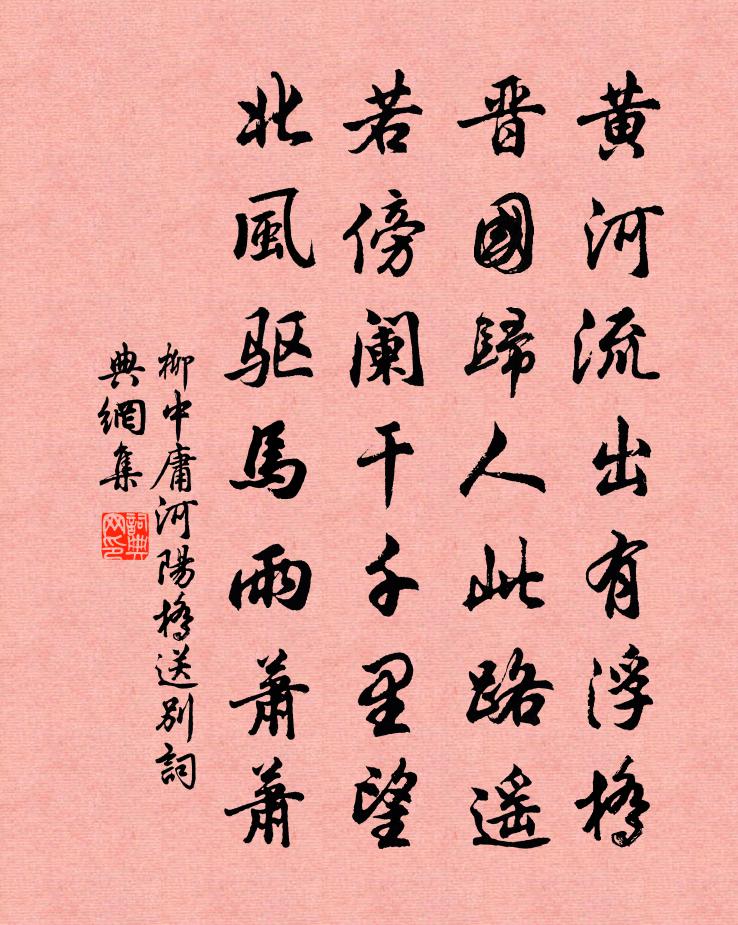 黄河流出有浮橋
晋國歸人此路遥
若傍闌干千里望
北風驱馬雨蕭蕭
柳中庸河陽橋送别詞
典網集
詞典网印